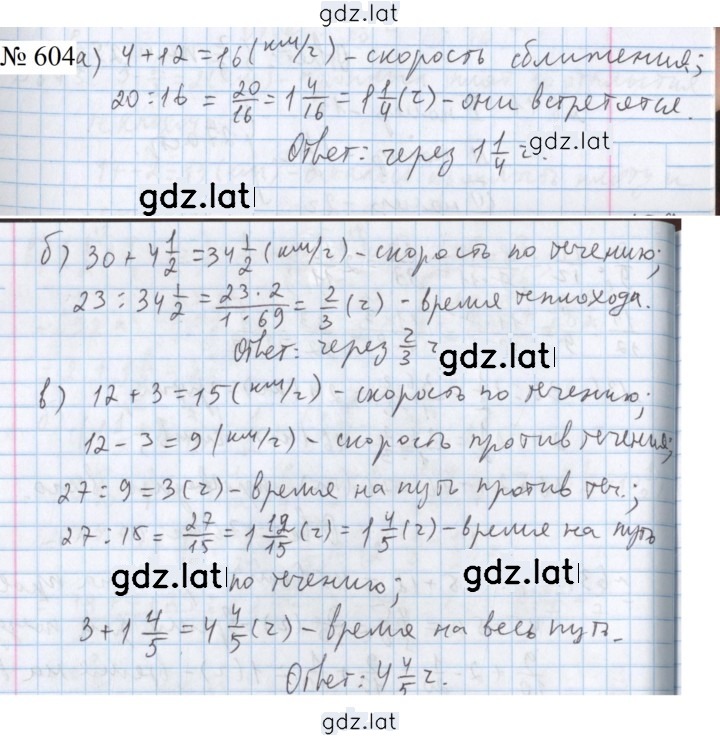 gdz.lat
№ 604 а) 4 + 12 = 16 (км/ч) - скорость сближения;
20 : 16 = 20/16 = 1 4/16 = 1 1/4 (ч) - они встретятся.
Ответ: через 1 1/4 ч.
gdz.lat
gdz.lat
б) 30 + 4 1/2 = 34 1/2 (км/ч) - скорость по течению;
23 : 34 1/2 = 23 · 2/1 · 69 = 2/3 (ч) - время теплохода.
Ответ: через 2/3 ч
gdz.lat
в) 12 + 3 = 15 (км/ч) - скорость по течению;
12 - 3 = 9 (км/ч) - скорость против течения;
27 : 9 = 3 (ч) - время на путь против теч.;
27 : 15 = 27/15 = 1 12/15 (ч) = 1 4/5 (ч) - время на путь
gdz.lat по течению; gdz.lat
3 + 1 4/5 = 4 4/5 (ч) - время на весь путь.
Ответ: 4 4/5 ч.
gdz.lat